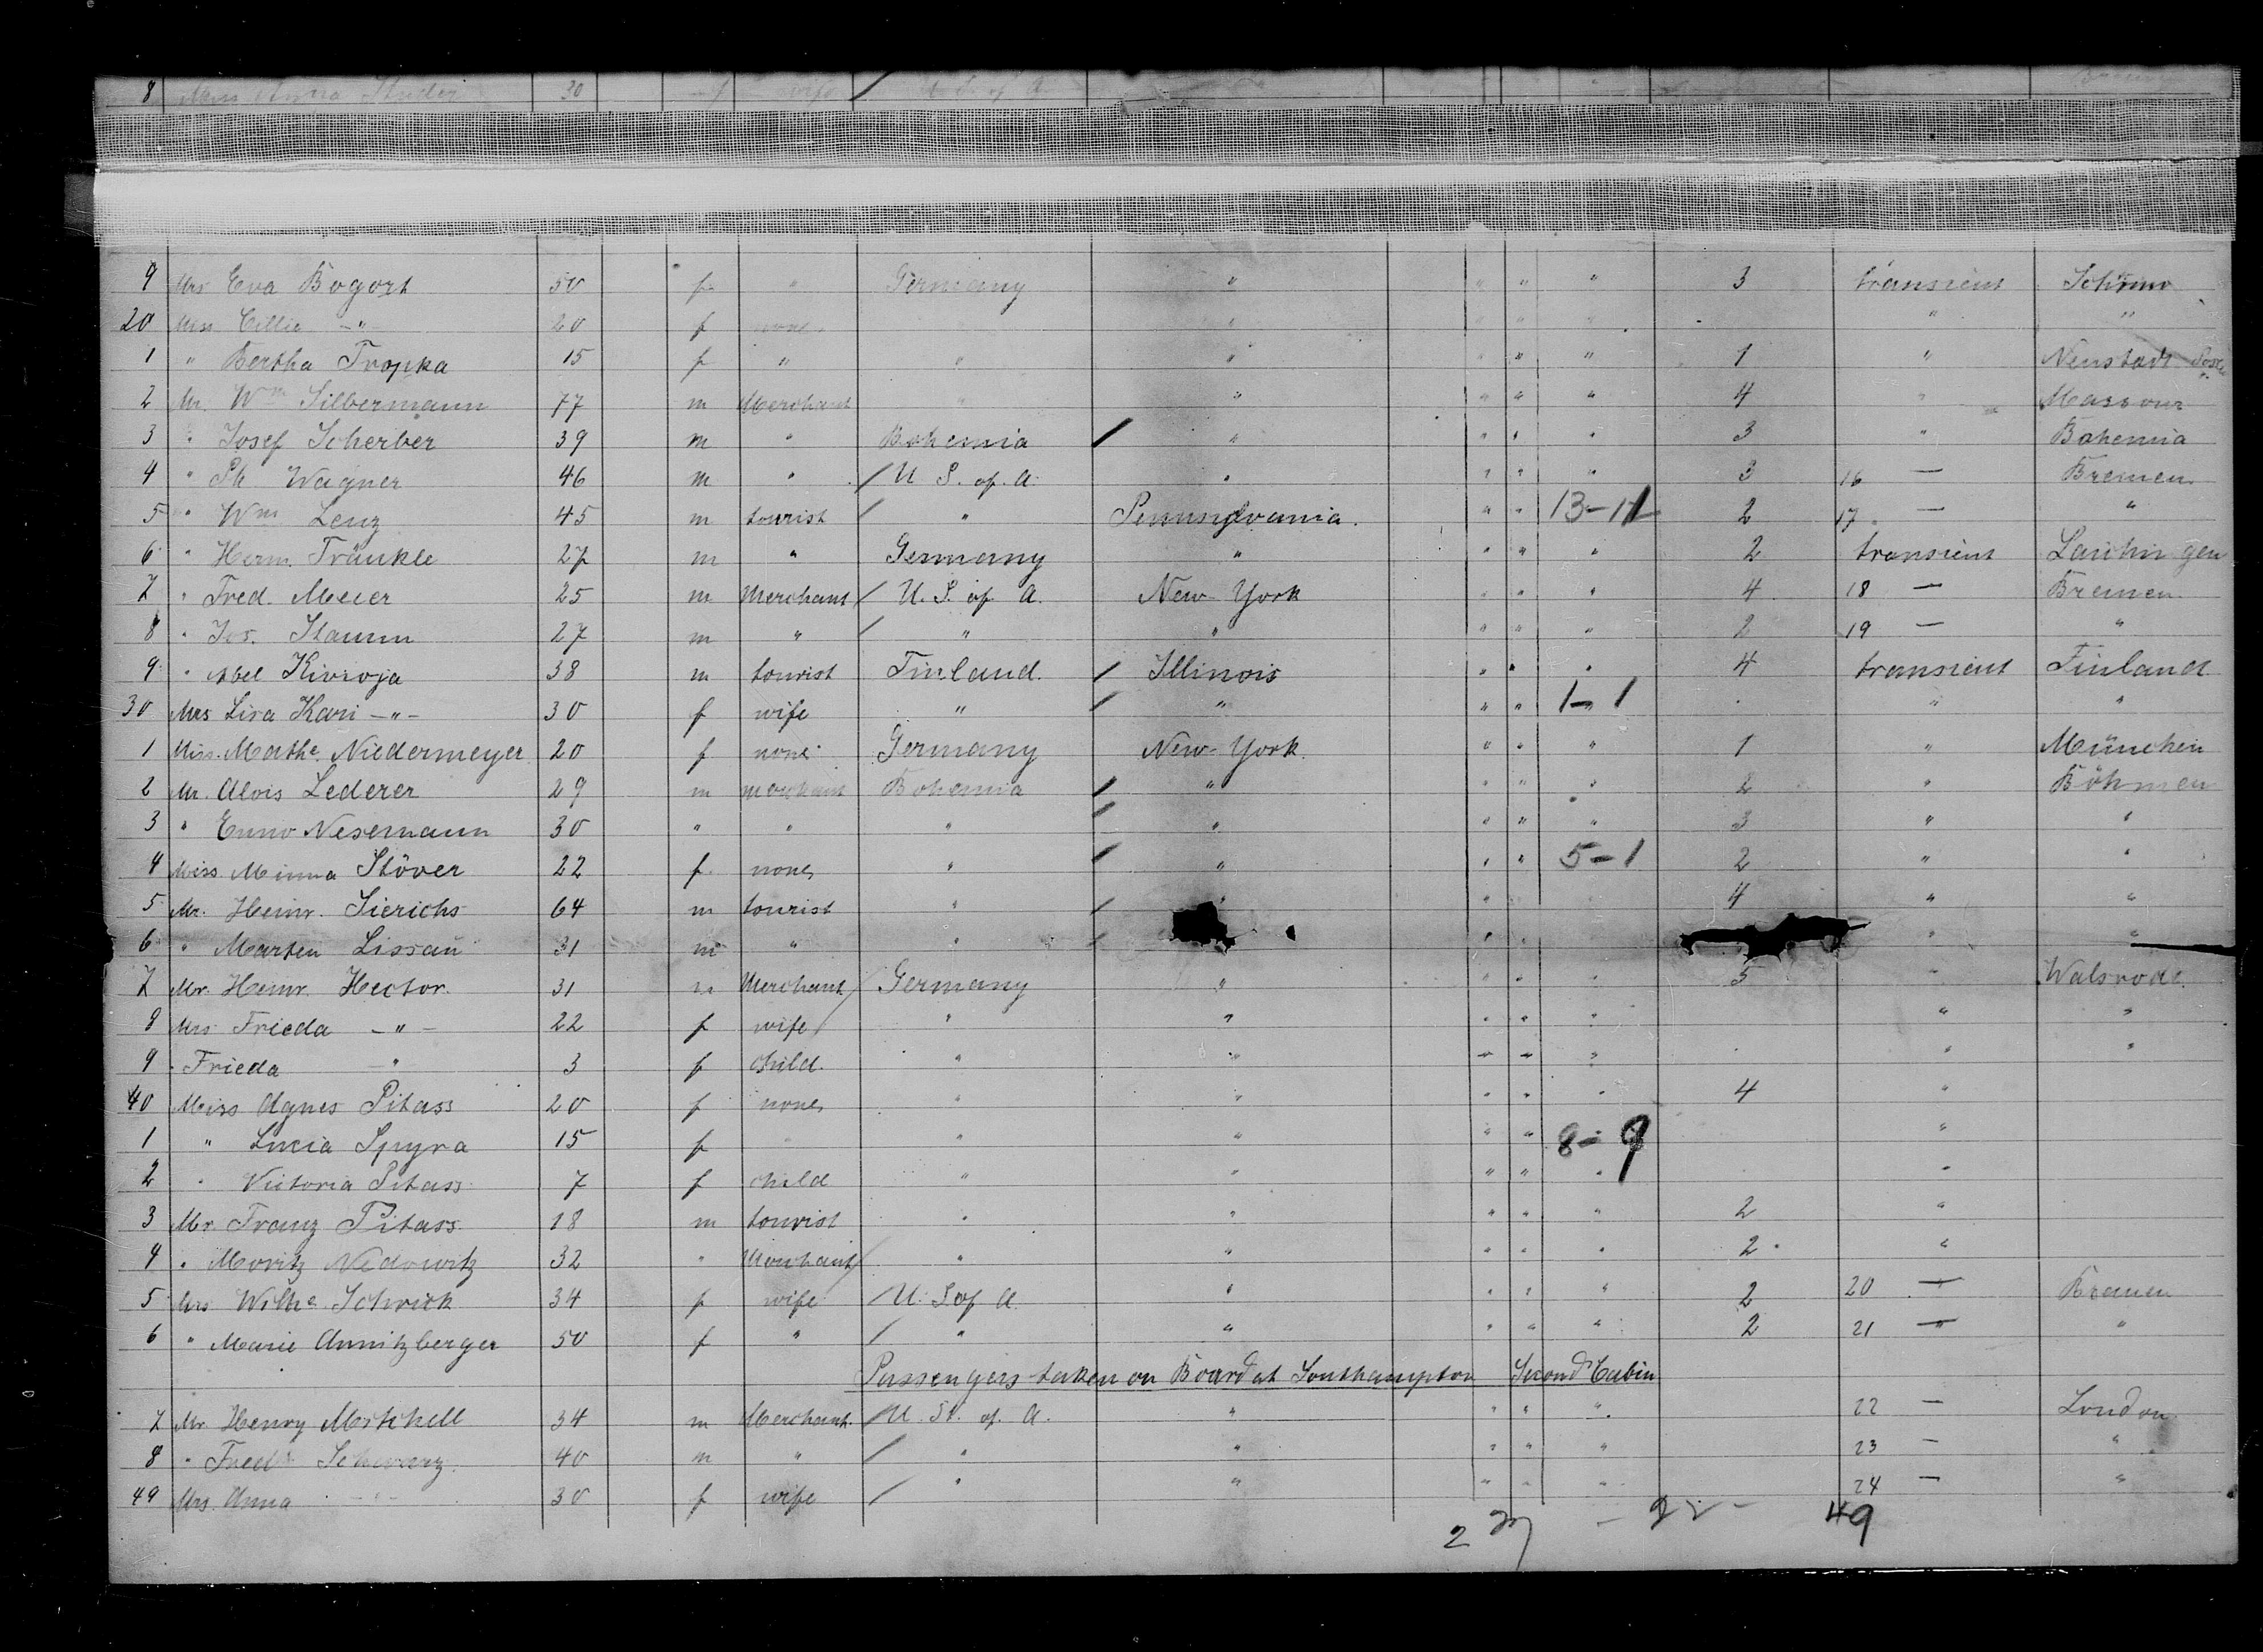 8 Miss Anna Studer 30 f wife / U. S. of A.
9 Mrs Eva Bogort 50 f " Germany " " " " 3 transient Schrimo
20 Miss Cillie -"- 20 f none " " " " " "
1 " Bertha Tropka 15 f " " " " " " 1 " Neustadt
2 Mr. Wm Silbermann 77 m Merchant " " " " " 4 " Massow
3 " Josef Scherber 39 m " Bohemia / " " " " 3 " Bohemia
4 " Ph. Wagner 46 m " / U S. of. A. " " " " 3 16 — Bremen
5 " Wm Lenz 45 m tourist / " Pennsylvania. " " 13-11 2 17 — "
6 " Herm. Fränkle 27 m " Germany " " " " 2 transient Lauchingen
7 " Fred. Meier 25 m Merchant / U. S. of A. New-York " " " 4 18 — Bremen
8 " Jos. Stamm 27 m " / " " " " " 2 19 — "
9 " Abel Kivioja 38 m tourist Finland. / Illinois " " " 4 transient Finland
30 Mrs Lisa Kari -"- 30 f wife " / " " " 1-1 " "
1 Miss. Mathe. Niedermeyer 20 f none Germany New-York " " " 1 " München
2 Mr. Alois Lederer 29 m merchant Bohemia / " " " " 2 " Böhmen
3 " Enno Nesemann 30 " " " / " " " " 3 " "
4 Miss Minna Stöver 22 f none " / " " " 5-1 2 " "
5 Mr. Heinr. Sierichs 64 m tourist " / " " 4 " "
6 " Marten Lissau 31 m " " / " " " "
7 Mr. Heinr. Hector. 31 m Merchant / Germany " " " " 5 " Walsrode.
8 Mrs Frieda -"- 22 f wife " " " " " " "
9 Frieda " 3 f child. " " " " " " "
40 Miss Agnes Pitass 20 f none " " " " " 4 "
1 " Lucia Spyra 15 f " " " " " 8-9 "
2 " Victoria Pitass 7 f child " " " " " "
3 Mr. Franz Pitass 18 m tourist " " " " " 2 "
4 " Moritz Nedowitz 32 " Merchant / " " " " " 2 "
5 Mrs Wilhe. Schrick 34 f wife / U. S of A. " " " " 2 20 — Bremen
6 " Marie Annitzberger 50 f " / " " " " " 2 21 — "
Passengers taken on Board at Southampton Second Cabin
7 Mr Henry Mitchell 34 m Merchant. / U. St. of. A. " " " " 22 — London
8 " Fredk Schwarz. 40 m " / " " " " " 23 — "
49 Mrs. Anna -"- 30 f wife / " " " " " 24 — "
2 27 - 22 - 49